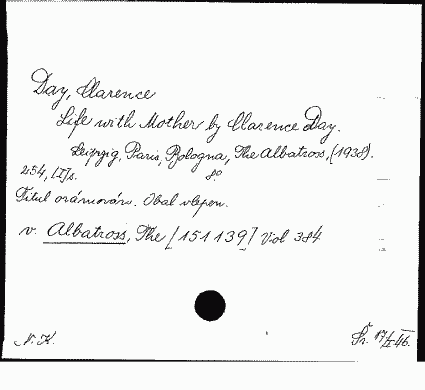 Day, Clarence
Life with Mother by Clarence Day.
Leipzig, Paris, Bologna, The Albatross, (1938).
254, [I] s. 8°
Titul orámován. Obal vlepen.
v. Albatross, The [151139] Vol 384
N. K. Šr. 17/I 46.